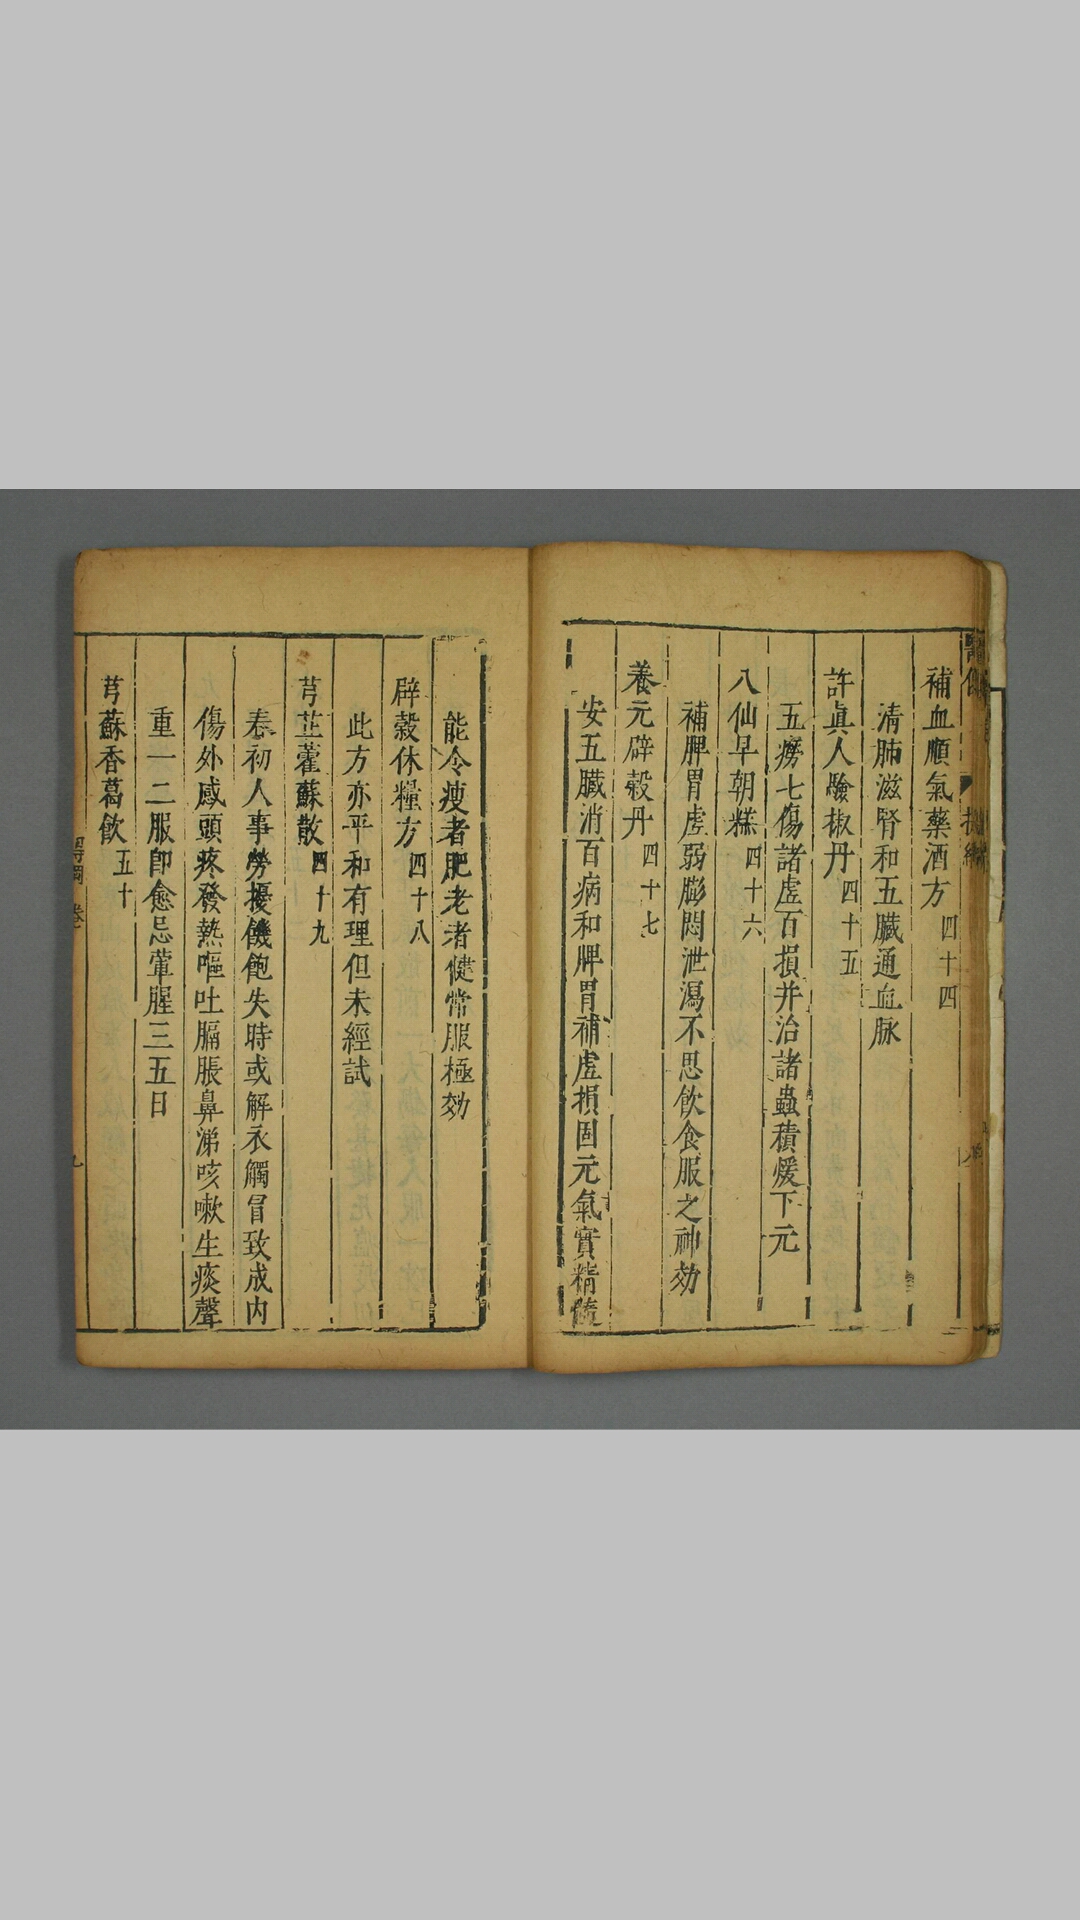 補血順氣藥酒方 四十四
清肺滋腎和五臟通血脉
許眞人驗椒丹 四十五
五癆七傷諸虛百損并治諸蟲積煖下元
八仙早朝糕 四十六
補脾胃虛弱膨悶泄瀉不思飲食服之神効
養元辟穀丹 四十七
安五臟消百病和脾胃補虛損固元氣實精髓
能令瘦者肥老者健常服極効
辟穀休糧方 四十八
此方亦平和有理但未經試
芎芷藿蘇散 四十九
春初人事勞擾饑飽失時或解衣觸冒致成内
傷外感頭疼發熱嘔吐膈脹鼻涕咳嗽生痰聲
重一二服卽愈忌葷腥三五日
芎蘇香葛飲 五十